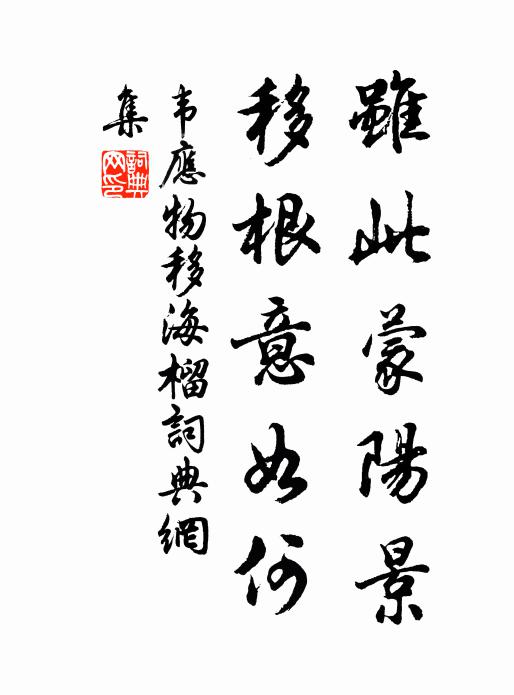 雖此蒙陽景
移根意如何
韦應物移海榴詞典網
集
詞典
网印